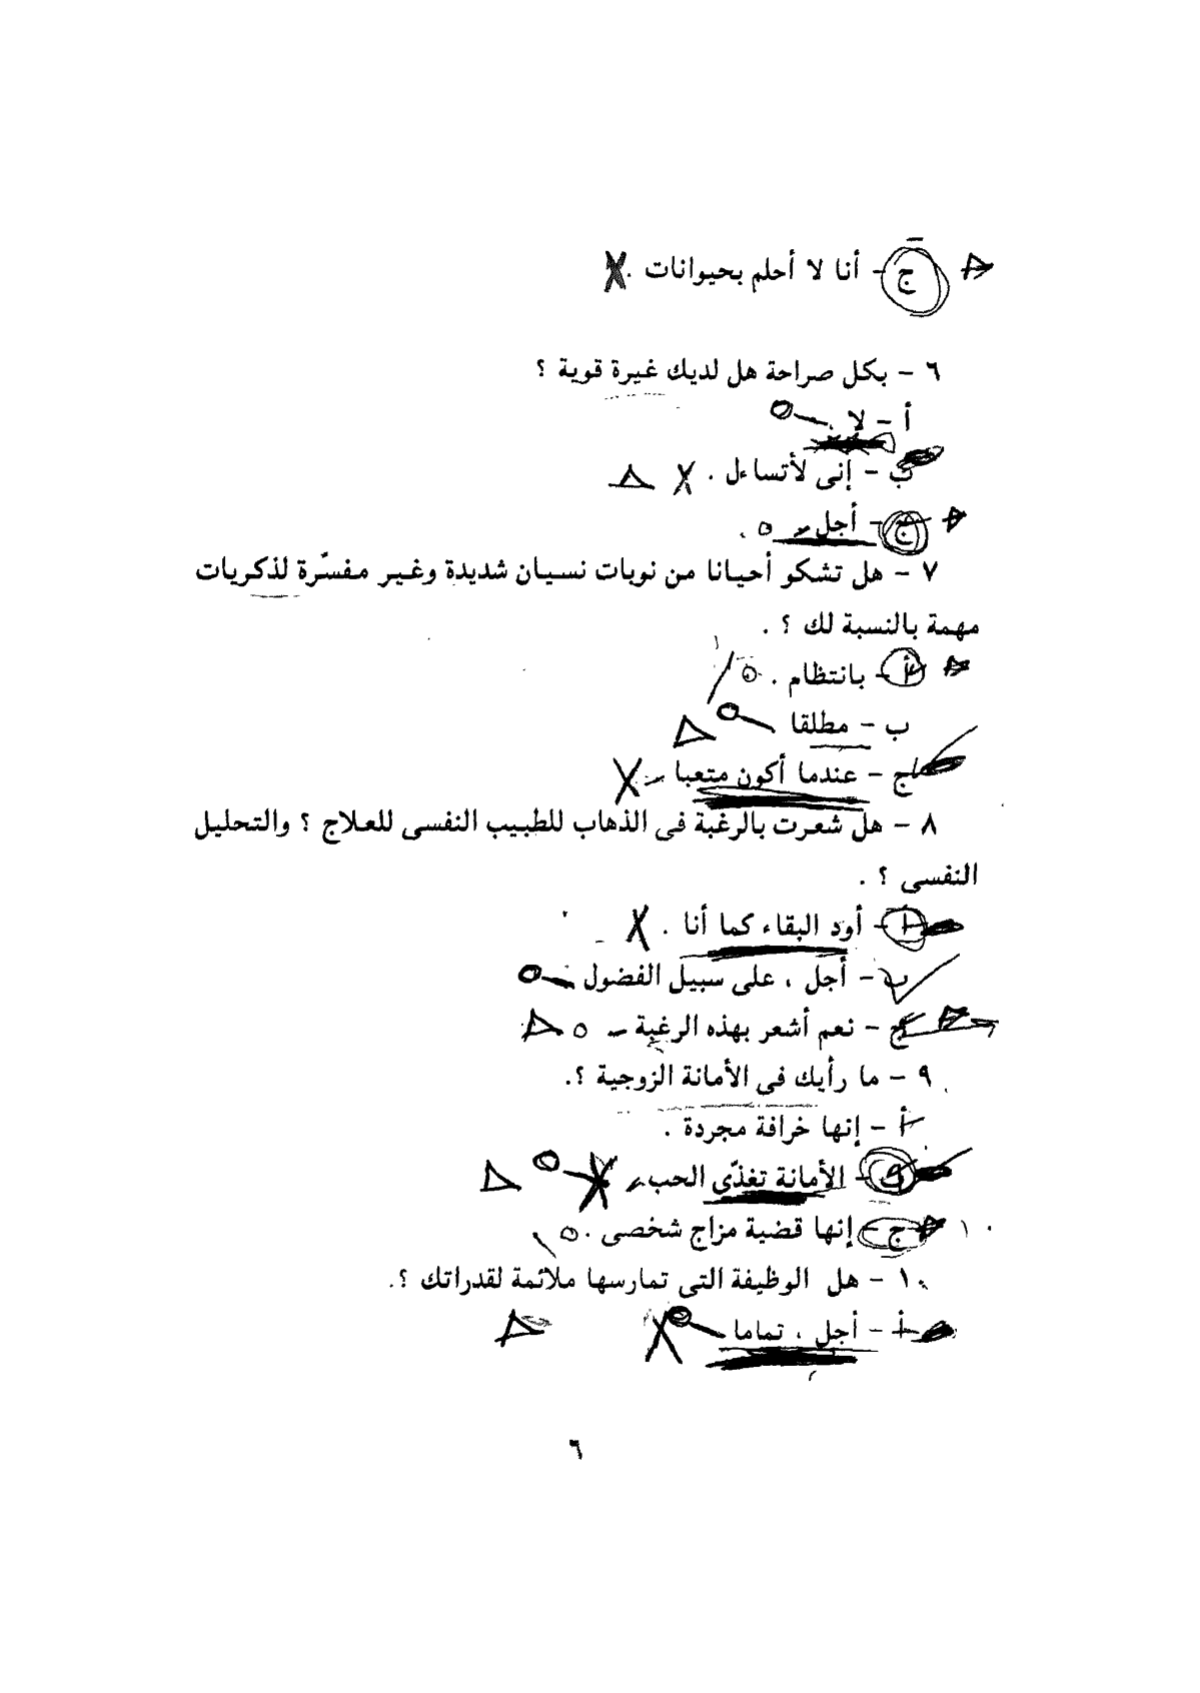 ج - أنا لا أحلم بحيوانات .
٦ - بكل صراحة هل لديك غيرة قوية ؟
أ - لا .
ب - إنى لأتساءل .
ج - أجل
٧ - هل تشكو أحيانا من نوبات نسيان شديدة وغير مفسّرة لذكريات
مهمة بالنسبة لك ؟ .
أ - بانتظام .
ب - مطلقا
ج - عندما أكون متعبا
٨ - هل شعرت بالرغبة فى الذهاب للطبيب النفسى للعلاج ؟ والتحليل
النفسى ؟ .
أ - أود البقاء كما أنا .
ب - أجل ، على سبيل الفضول
ج - نعم أشعر بهذه الرغبة
٩ - ما رأيك فى الأمانة الزوجية ؟.
أ - إنها خرافة مجردة .
ب - الأمانة تغذّى الحب
ج - إنها قضية مزاج شخصى .
١٠ - هل الوظيفة التى تمارسها ملائمة لقدراتك ؟.
أ - أجل ، تماما
٦